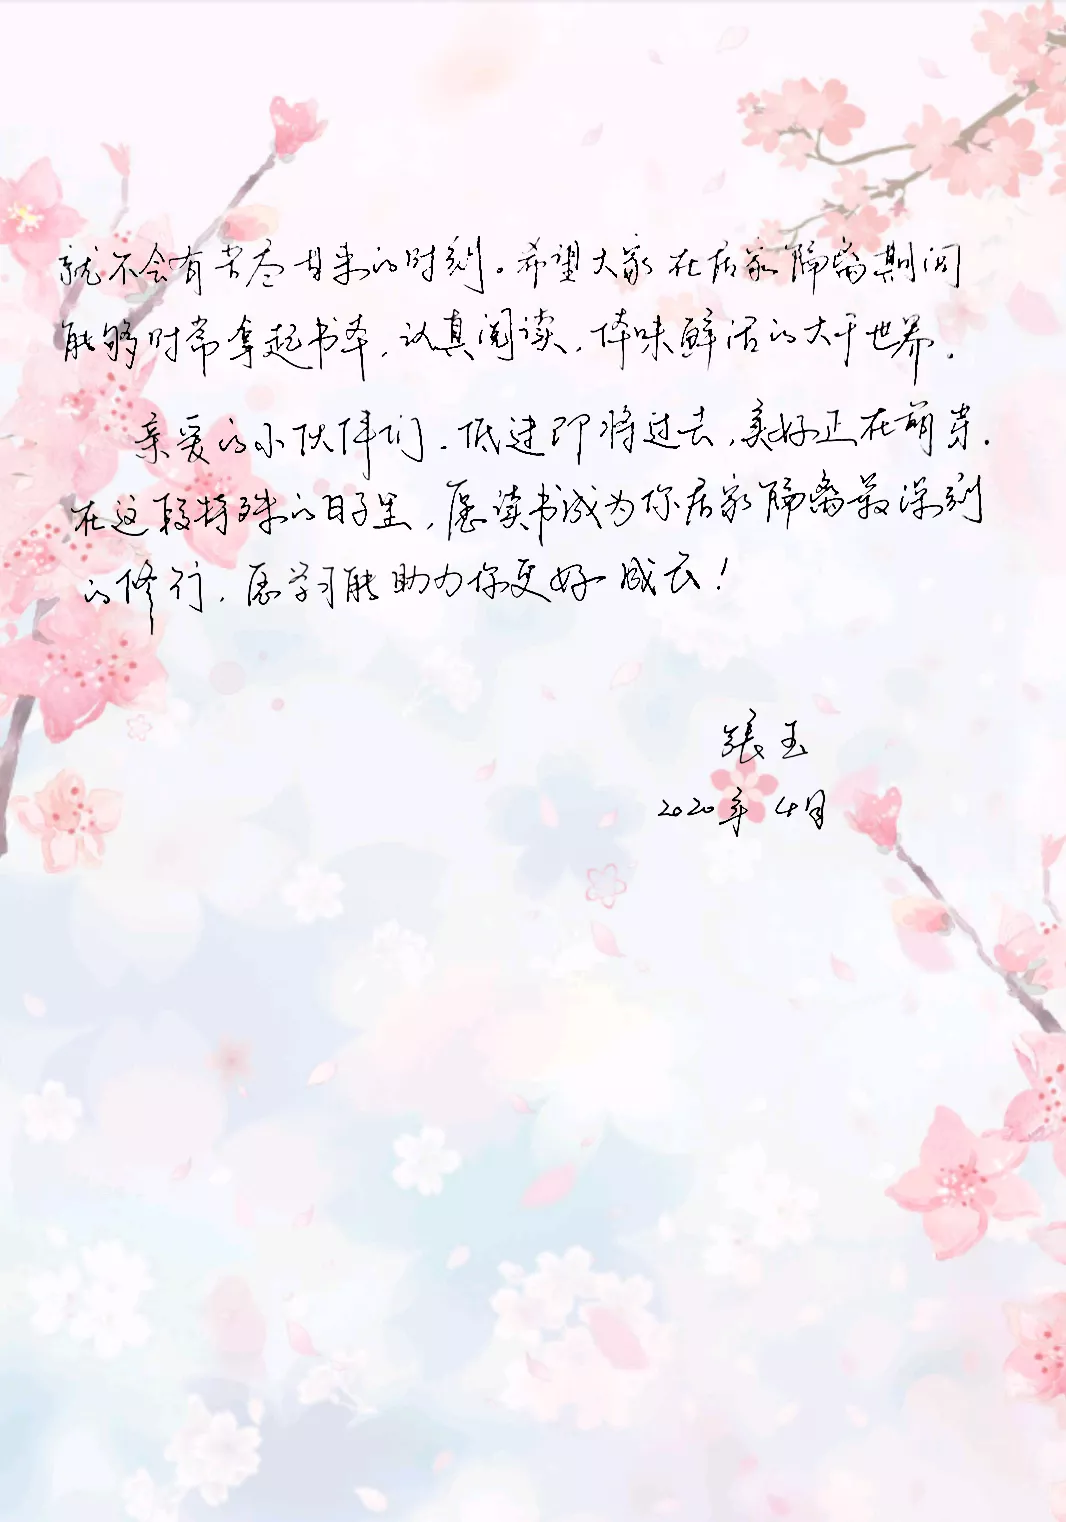 就不会有苦尽甘来的时刻。希望大家在居家隔离期间
能够时常拿起书本,认真阅读,体味鲜活的大千世界.
亲爱的小伙伴们,低迷即将过去,美好正在萌芽.
在这段特殊的日子里,愿读书成为你居家隔离最深刻
的修行,愿学习能助力你更好成长!
张玉
2020年4月